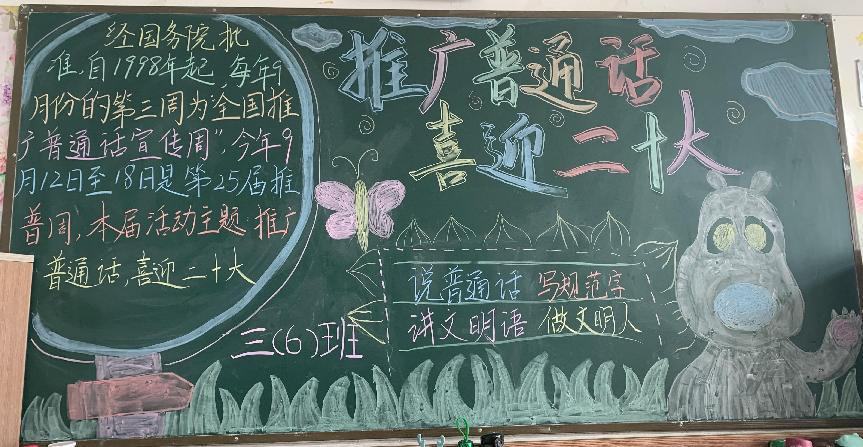 经国务院批
准,自1998年起,每年9
月份的第三周为"全国推
广普通话宣传周",今年9
月12日至18日是第25届推
普周,本届活动主题:推广
普通话,喜迎二十大
推广普通话
喜迎二十大
说普通话 写规范字
讲文明语 做文明人
三(6)班